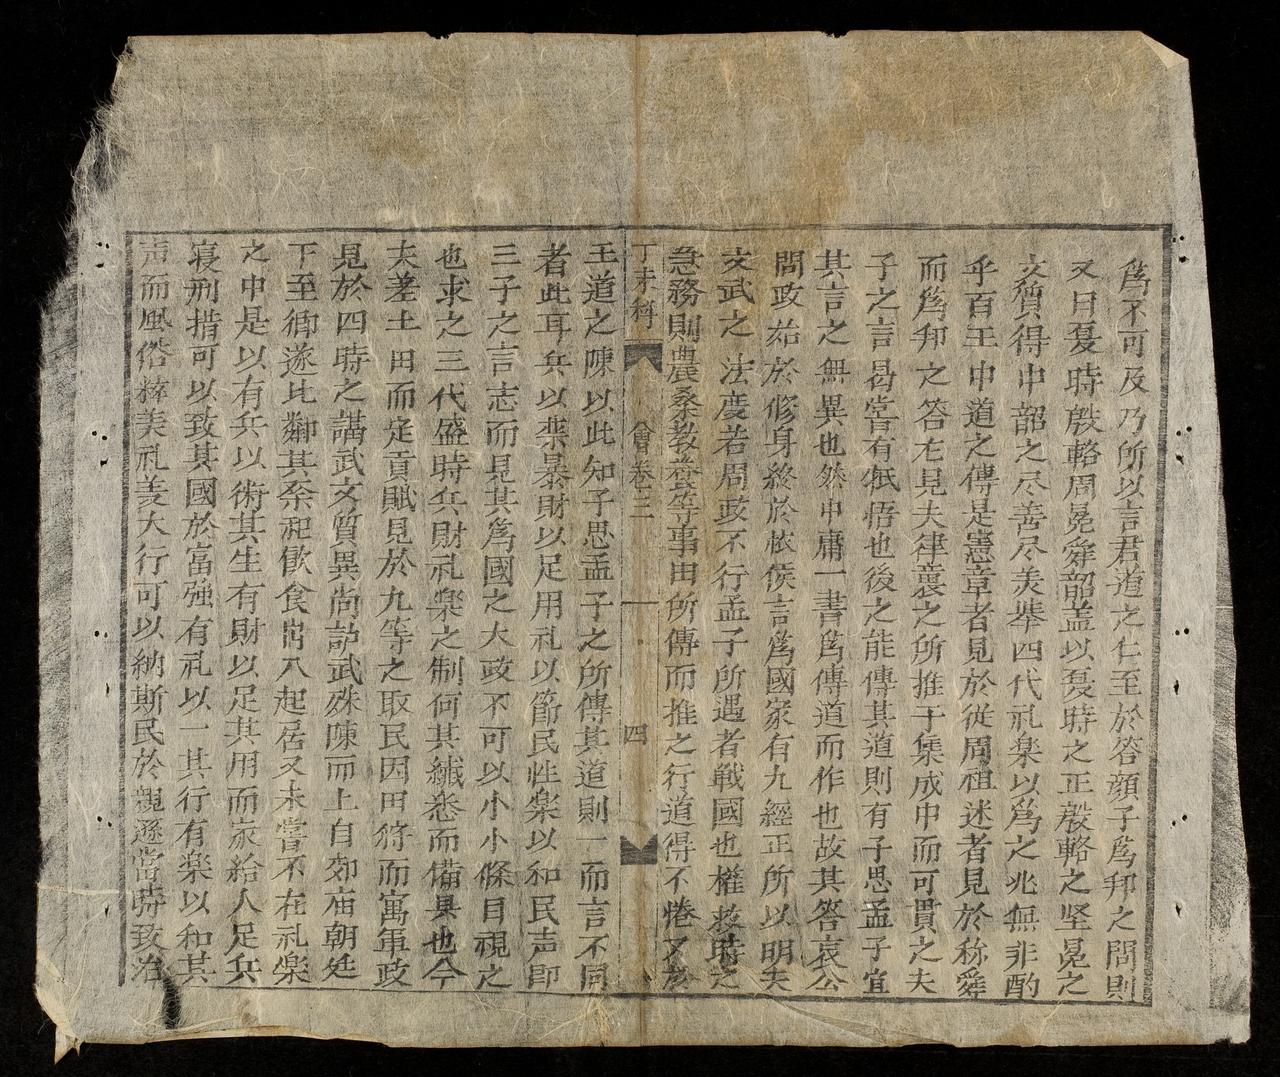 爲不可及乃所以言君道之仁至於答顔子爲邦之問則
又曰夏時殷輅周冕舜韶盖以夏時之正殷輅之坚冕之
文質得中韶之尽善尽美举四代礼楽以爲之兆無非酌
乎百王中道之傳是憲章者見於從周祖述者見於称舜
而爲邦之答左見夫律襄之所推于集成中而可貫之夫
子之言曷當有牴悟也後之能傳其道則有子思孟子宜
其言之無異也然中庸一書爲傳道而作也故其答哀公
問政始於修身終於怀侯言爲國家有九經正所以明夫
文武之法度若周政不行孟子所遇者戦國也權救時之
急務則農桑教養等事由所傳而推之行道得不惓又
丁未科 會卷三 四
王道之陳以此知子思孟子之所傳其道則一而言不同
者此耳兵以禁暴財以足用礼以節民性楽以和民声即
三子之言志而見其爲國之大政不可以小小條目視之
也求之三代盛時兵財礼楽之制何其纎悉而備具也今
夫差土田而定貢賦見於九等之取民因田狩而寓軍政
見於四時之講武文質異尚韶武殊陳而上自郊庙朝廷
下至鄉遂比鄰其祭祀飲食出入起居又未嘗不在礼楽
之中是以有兵以術其生有財以足其用而家給人足兵
寝刑措可以致其國於富強有礼以一其行有楽以和其
声而風俗粹美礼羙大行可以納斯民於親遜當時致治